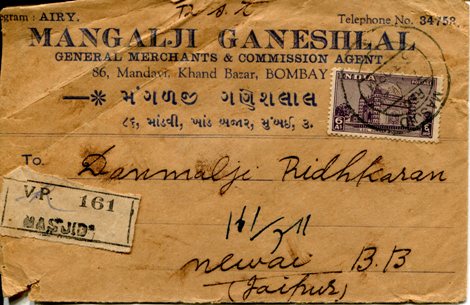 egram : AIRY.
Telephone No. 34758.
MANGALJI GANESHLAL
GENERAL MERCHANTS & COMMISSION AGENT.
86, Mandavi, Khand Bazar, BOMBAY
મંગળજી ગણેશલાલ
૮૬, માંડવી, ખાંડ બજાર, મુંબઈ, ૩.
INDIA
To
Danmalji Ridhkaran
V P 161
MASJID
newai B.B
(Jaipur)